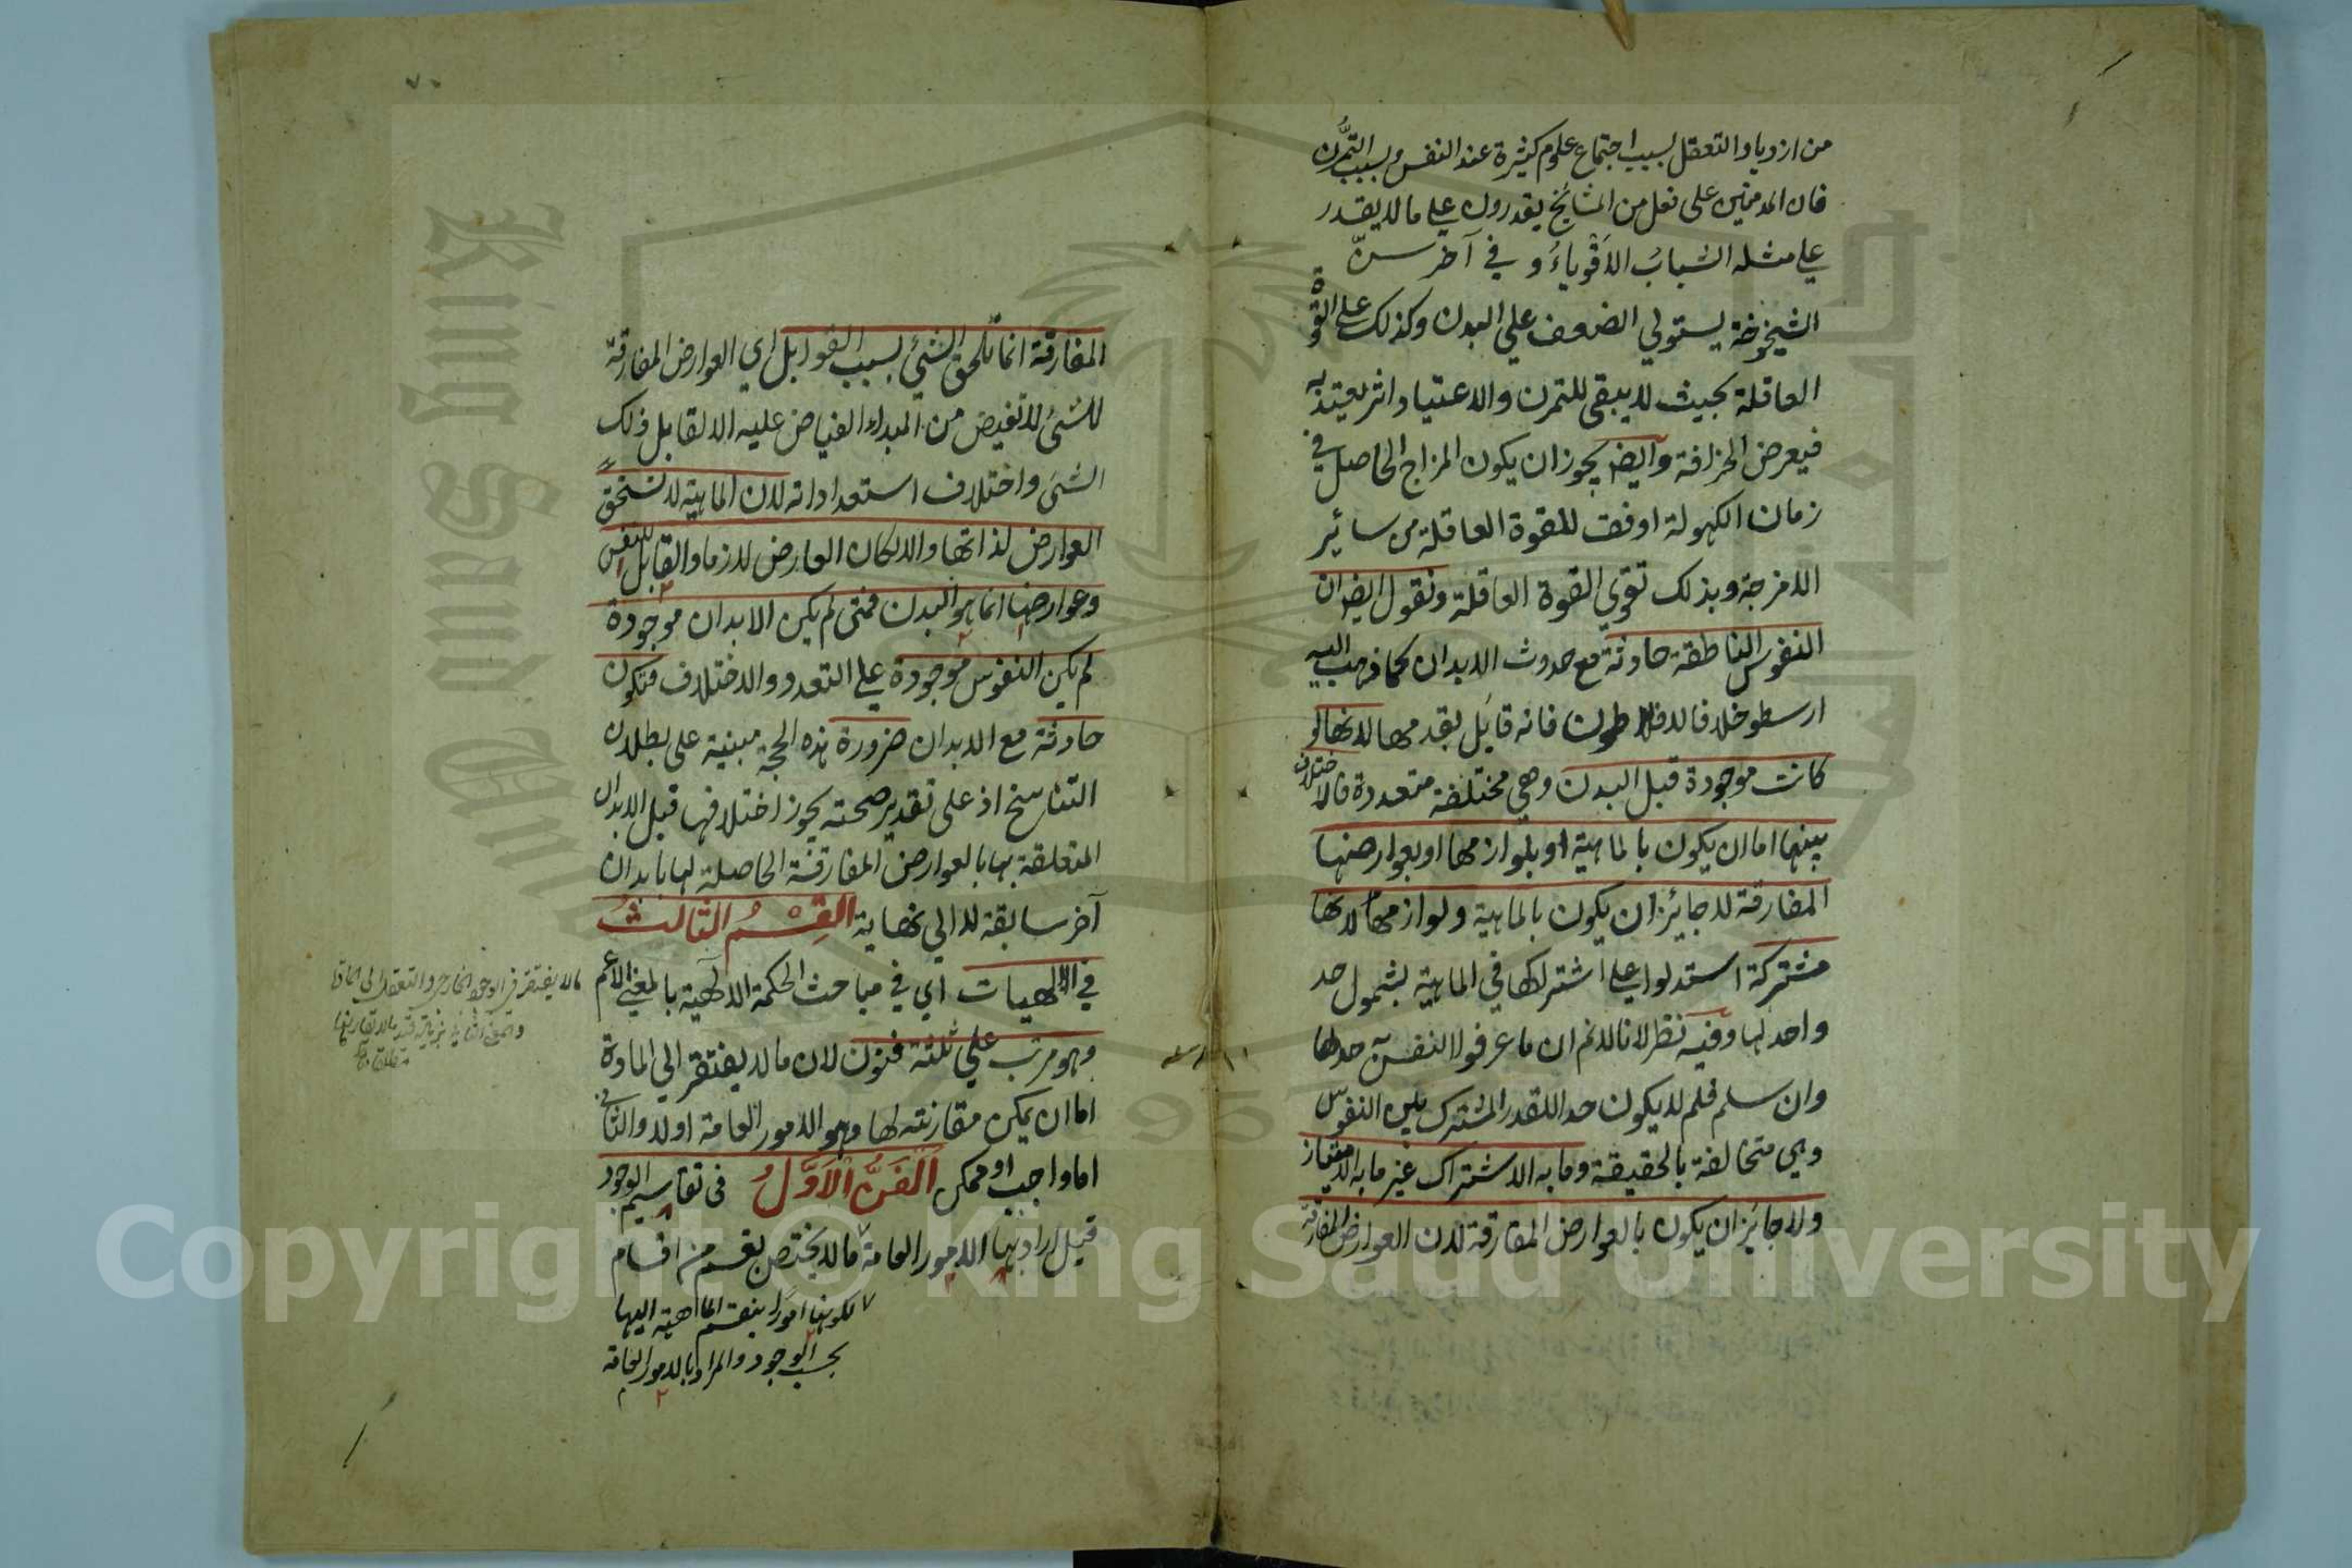 من ازدياد التعقل بسبب اجتماع علوم كثيرة عند النفس وبسبب التمرُّن
فان المدمنين على فعل من المشايخ يقدرون علي ما لا يقدر
علي مثله الشبابُ الأقوياءُ و في آخر سنّ
الشيخوخة يستولي الضعف علي البدن وكذلك علي القوة
العاقلة بحيث لا يبقى للتمرن والاعتياد اثر يعتد به
فيعرض الخرافة وايضا يجوز ان يكون المزاج الحاصل في
زمان الكهولة اوفق للقوة العاقلة من سائر
الامزجة وبذلك تقوي القوة العاقلة ونقول ايضا ان
النفوس الناطقة حادثة مع حدوث الابدان كما ذهب اليه
ارسطو خلافا لافلاطون فانه قايل بقدمها لانها لو
كانت موجودة قبل البدن وهي مختلفة متعددة فالاختلاف
بينها اما ان يكون بالماهية او بلوازمها او بعوارضها
المفارقة لا جايز ان يكون بالماهية ولوازمها لانها
مشتركة استدلوا علي اشتراكها في الماهية بشمول حد
واحد لها وفيه نظر لانا لا نم ان ما عرفوا النفس به حد لها
وان سلم فلم لا يكون حدا للقدر المشترك بين النفوس
وهي متخالفة بالحقيقة وما به الاشتراك غير ما به الامتياز
ولا جايز ان يكون بالعوارض المفارقة لان العوارض المفارقة
المفارقة انما تلحق الشئ بسبب القوابل اي العوارض المفارقة
للشئ لا تفيض من المبداء الفياض عليه الا لقابل ذلك
الشئ واختلاف استعداداته لان الماهية لا تستحق
العوارض لذاتها والا لكان العارض لازما والقابل للنفس
وعوارضها انما هو البدن فمتى لم يكن الابدان موجودة
لم يكن النفوس موجودة علي التعدد والاختلاف فتكون
حادثة مع الابدان ضرورة هذه الحجة مبنية على بطلان
التناسخ اذ على تقدير صحته يجوز اختلافها قبل الابدان
المتعلقة بها بالعوارض المفارقة الحاصلة لها بابدان
آخر سابقة لا الي نهاية القِسْمُ الثالثُ
في الالهيات اي في مباحث الحكمة الالهية بالمعني الاعم
وهو مرتب علي ثلثة فنون لان ما لا يفتقر الي المادة
اما ان يمكن مقارنته لها وهو الامور العامة اولا والثاني
اما واجب او ممكن اَلْفَنُّ الْاَوَّلُ في تقاسيم الوجود
قيل اراد بها الامور العامة ما لا يختص بقسم من اقسام
لكونها امورا ينقسم الماهية اليها
بحسب الوجود والمراد بالامور العامة
ما لا يفتقر في الوجود الخارجي والتعقل الي المادة
Copyright © King Saud University
King Saud University
1957